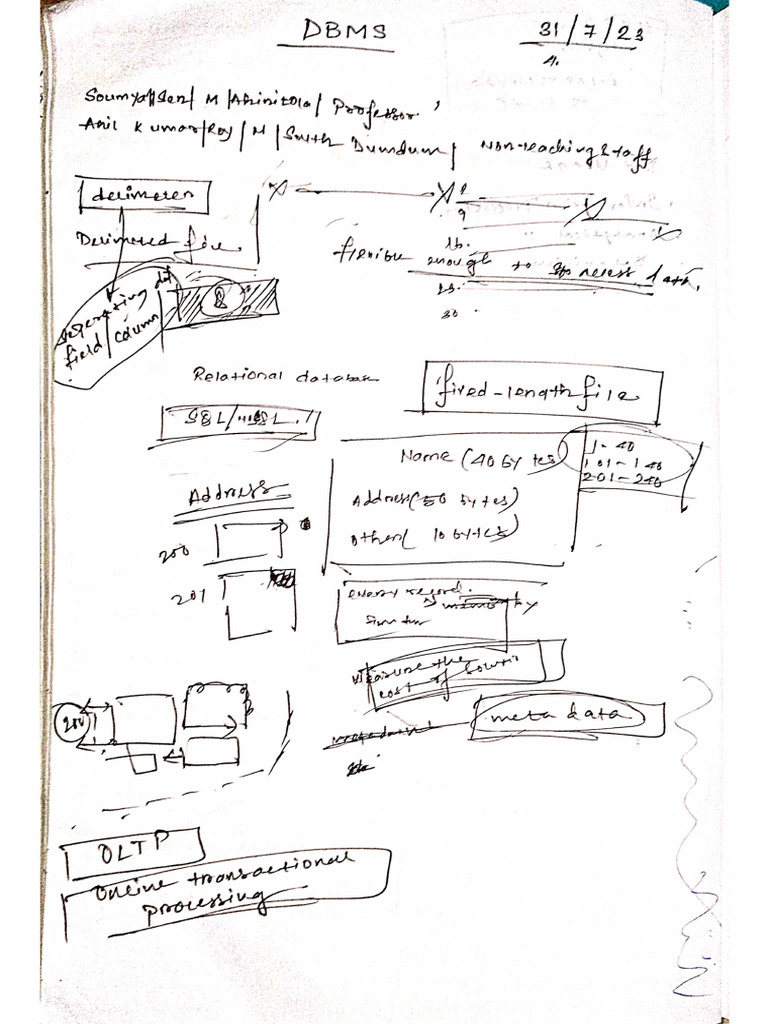 DBMS
31/7/23
4.
Soumya Sen/ M /Abinitola/ Professor
Anil Kumar Roy/ M / South Dumdum/ Non-teaching staff
delimeter
Delimeted file
8
9
16.
flexible enough to access data,
30
field/column
Relational database
fixed-length file
Name (40 bytes)
1-40
101-140
201-240
Address
Address (50 bytes)
Other ( 10 bytes)
200
201
every record.
Measure the
cost of
200
meta data
OLTP
Online transactional
processing